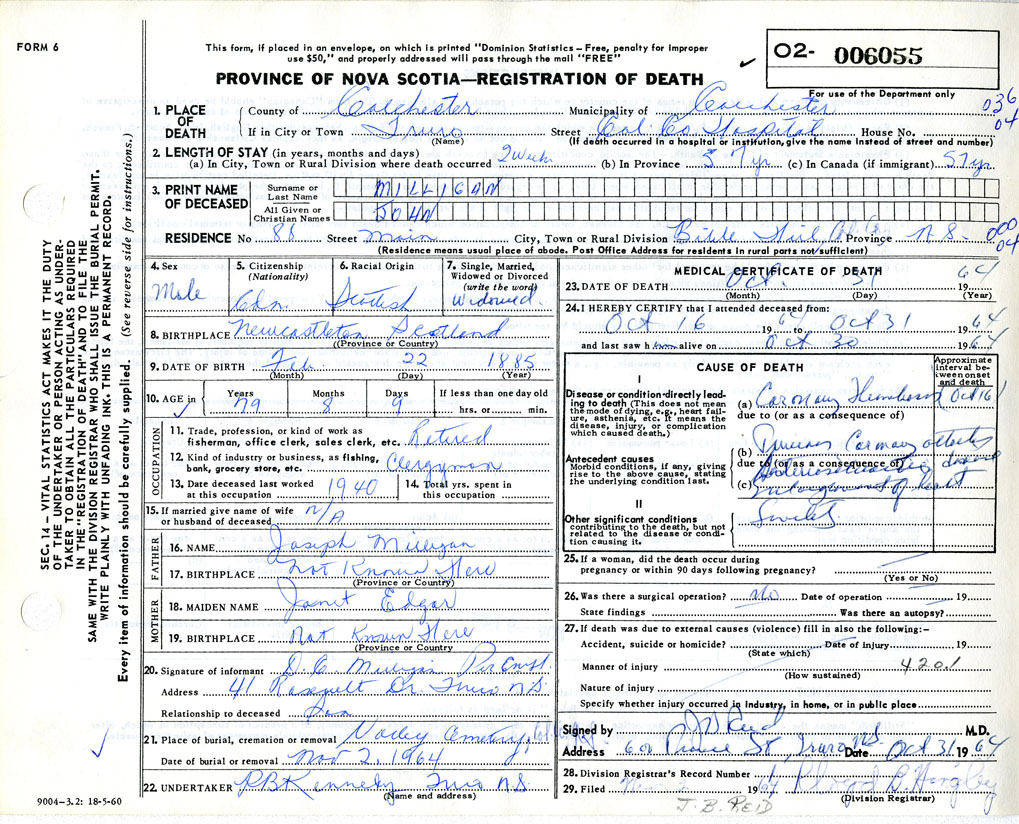 FORM 6
This form, if placed in an envelope, on which is printed "Dominion Statistics – Free, penalty for improper
use $50," and properly addressed will pass through the mail "FREE"
✓
O2- 006055
For use of the Department only
PROVINCE OF NOVA SCOTIA—REGISTRATION OF DEATH
036
04
1. PLACE OF DEATH
County of Colchester Municipality of Colchester
If in City or Town Truro Street Col. Co. Hospital House No.
(Name) (If death occurred in a hospital or institution, give the name instead of street and number)
2. LENGTH OF STAY (in years, months and days)
(a) In City, Town or Rural Division where death occurred 2 Weeks (b) In Province 57 yr. (c) In Canada (if immigrant) 57 yr.
3. PRINT NAME OF DECEASED
Surname or Last Name MILLIGAN
All Given or Christian Names JOHN
RESIDENCE No 86 Street Main City, Town or Rural Division Bible Hill, Col. Co. Province N.S. 000
04
(Residence means usual place of abode. Post Office Address for residents in rural parts not sufficient)
4. Sex Male
5. Citizenship (Nationality) Cdn.
6. Racial Origin Scotish
7. Single, Married, Widowed or Divorced (write the word) Widowed.
8. BIRTHPLACE Newcastleton Scotland
(Province or Country)
9. DATE OF BIRTH Feb. 22 1885
(Month) (Day) (Year)
10. AGE in Years 79 Months 8 Days 9 If less than one day old hrs. or min.
✓
OCCUPATION
11. Trade, profession, or kind of work as
fisherman, office clerk, sales clerk, etc. Retired
12. Kind of industry or business, as fishing,
bank, grocery store, etc. Clergyman
13. Date deceased last worked at this occupation 1940 14. Total yrs. spent in this occupation
15. If married give name of wife or husband of deceased N/A
FATHER
16. NAME Joseph Milligan
17. BIRTHPLACE Not Known Here
(Province or Country)
MOTHER
18. MAIDEN NAME Janet Edgar
19. BIRTHPLACE Not Known Here
(Province or Country
20. Signature of informant D. C. Milligan Per
Address 41 Dr. Truro N.S.
Relationship to deceased Son
21. Place of burial, cremation or removal Valley Cemetery,
Date of burial or removal Nov 2, 1964
✓
22. UNDERTAKER P B Kennedy Truro N.S.
(Name and address)
9004–3.2: 18-5-60
SEC. 14 – VITAL STATISTICS ACT MAKES IT THE DUTY
OF THE UNDERTAKER OR PERSON ACTING AS UNDER-
TAKER TO OBTAIN ALL THE PARTICULARS REQUIRED
IN THE "REGISTRATION OF DEATH" AND TO FILE THE
SAME WITH THE DIVISION REGISTRAR WHO SHALL ISSUE THE BURIAL PERMIT.
WRITE PLAINLY WITH UNFADING INK. THIS IS A PERMANENT RECORD.
Every item of information should be carefully supplied. (See reverse side for instructions.)
MEDICAL CERTIFICATE OF DEATH
23. DATE OF DEATH Oct. 31 19 64
(Month) (Day) (Year)
24. I HEREBY CERTIFY that I attended deceased from:
Oct 16 19 64 to Oct 31 19 64
and last saw him alive on Oct 30 19 64
CAUSE OF DEATH
Approximate interval between onset and death
I
Disease or condition directly leading to death (This does not mean the mode of dying, e.g., heart failure, asthenia, etc. It means the disease, injury, or complication which caused death.)
(a) Coronary Thrombosis (Oct 16)
due to (or as a consequence of)
Antecedent causes
Morbid conditions, if any, giving rise to the above cause, stating the underlying condition last.
(b) Previous Coronary attacks
due to (or as a consequence of)
(c) Arteriosclerotic disease
enlargement of heart
II
Other significant conditions
contributing to the death, but not related to the disease or condition causing it.
25. If a woman, did the death occur during
pregnancy or within 90 days following pregnancy?
(Yes or No)
26. Was there a surgical operation? No Date of operation 19
State findings Was there an autopsy?
27. If death was due to external causes (violence) fill in also the following:–
Accident, suicide or homicide? Date of injury 19
(State which)
Manner of injury 420.1
(How sustained)
Nature of injury
Specify whether injury occurred in industry, in home, or in public place
Signed by J B Reid M.D.
Address 601 Prince St, Truro NS Date Oct 31 1964
28. Division Registrar's Record Number 1
29. Filed Nov 2 1964
(Division Registrar)
J. B. REID